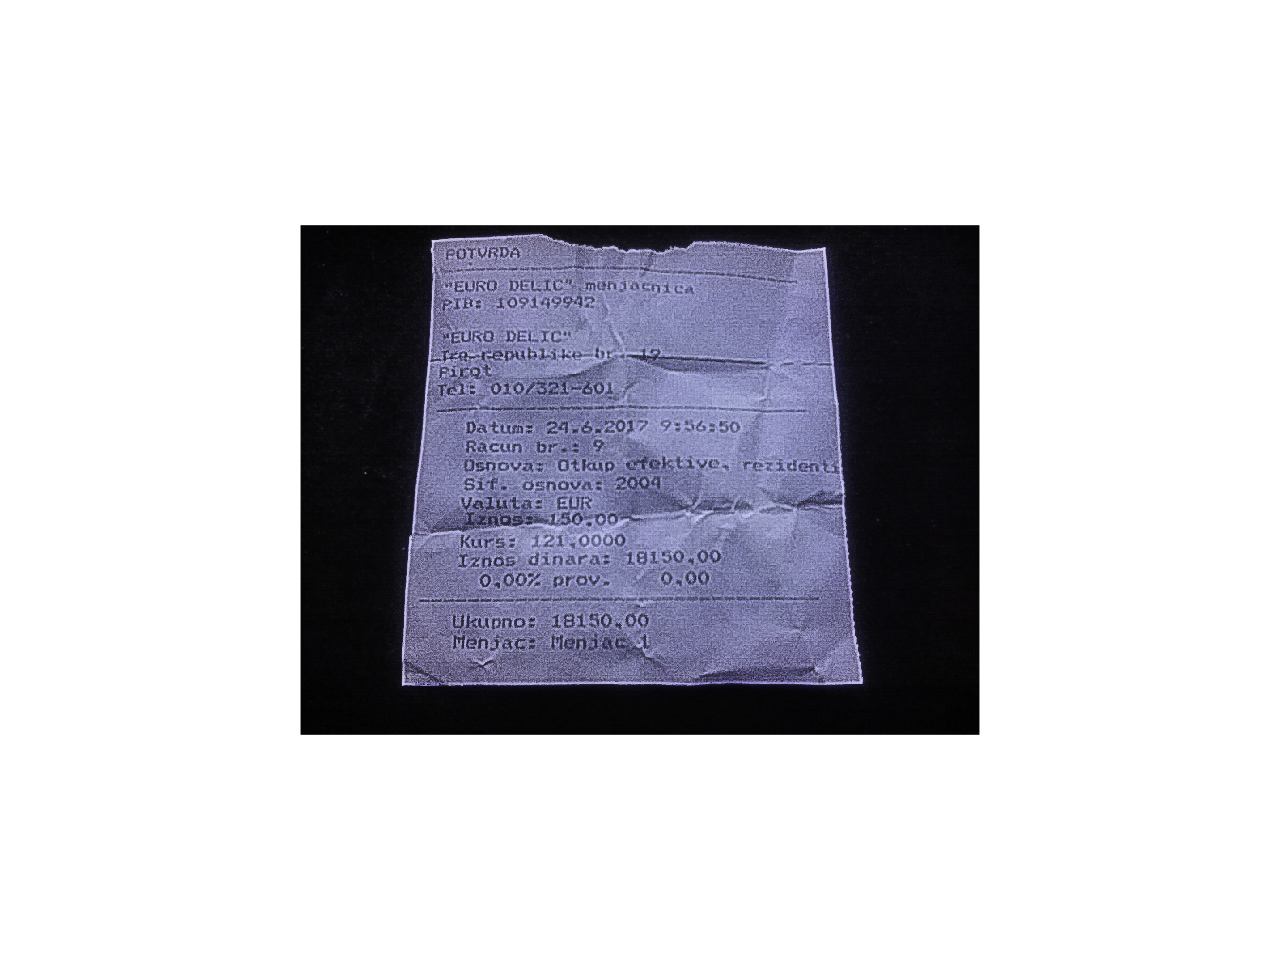 POTVRDA
"EURO DELIC" menjacnica
PIB: 109149942
"EURO DELIC"
Trg republike br. 19
Pirot
Tel: 010/321-601
Datum: 24.6.2017 9:56:50
Racun br.: 9
Osnova: Otkup efektive, rezidenti
Sif. osnova: 2004
Valuta: EUR
Iznos: 150.00
Kurs: 121.0000
Iznos dinara: 18150.00
0.00% prov. 0.00
Ukupno: 18150.00
Menjac: Menjac 1